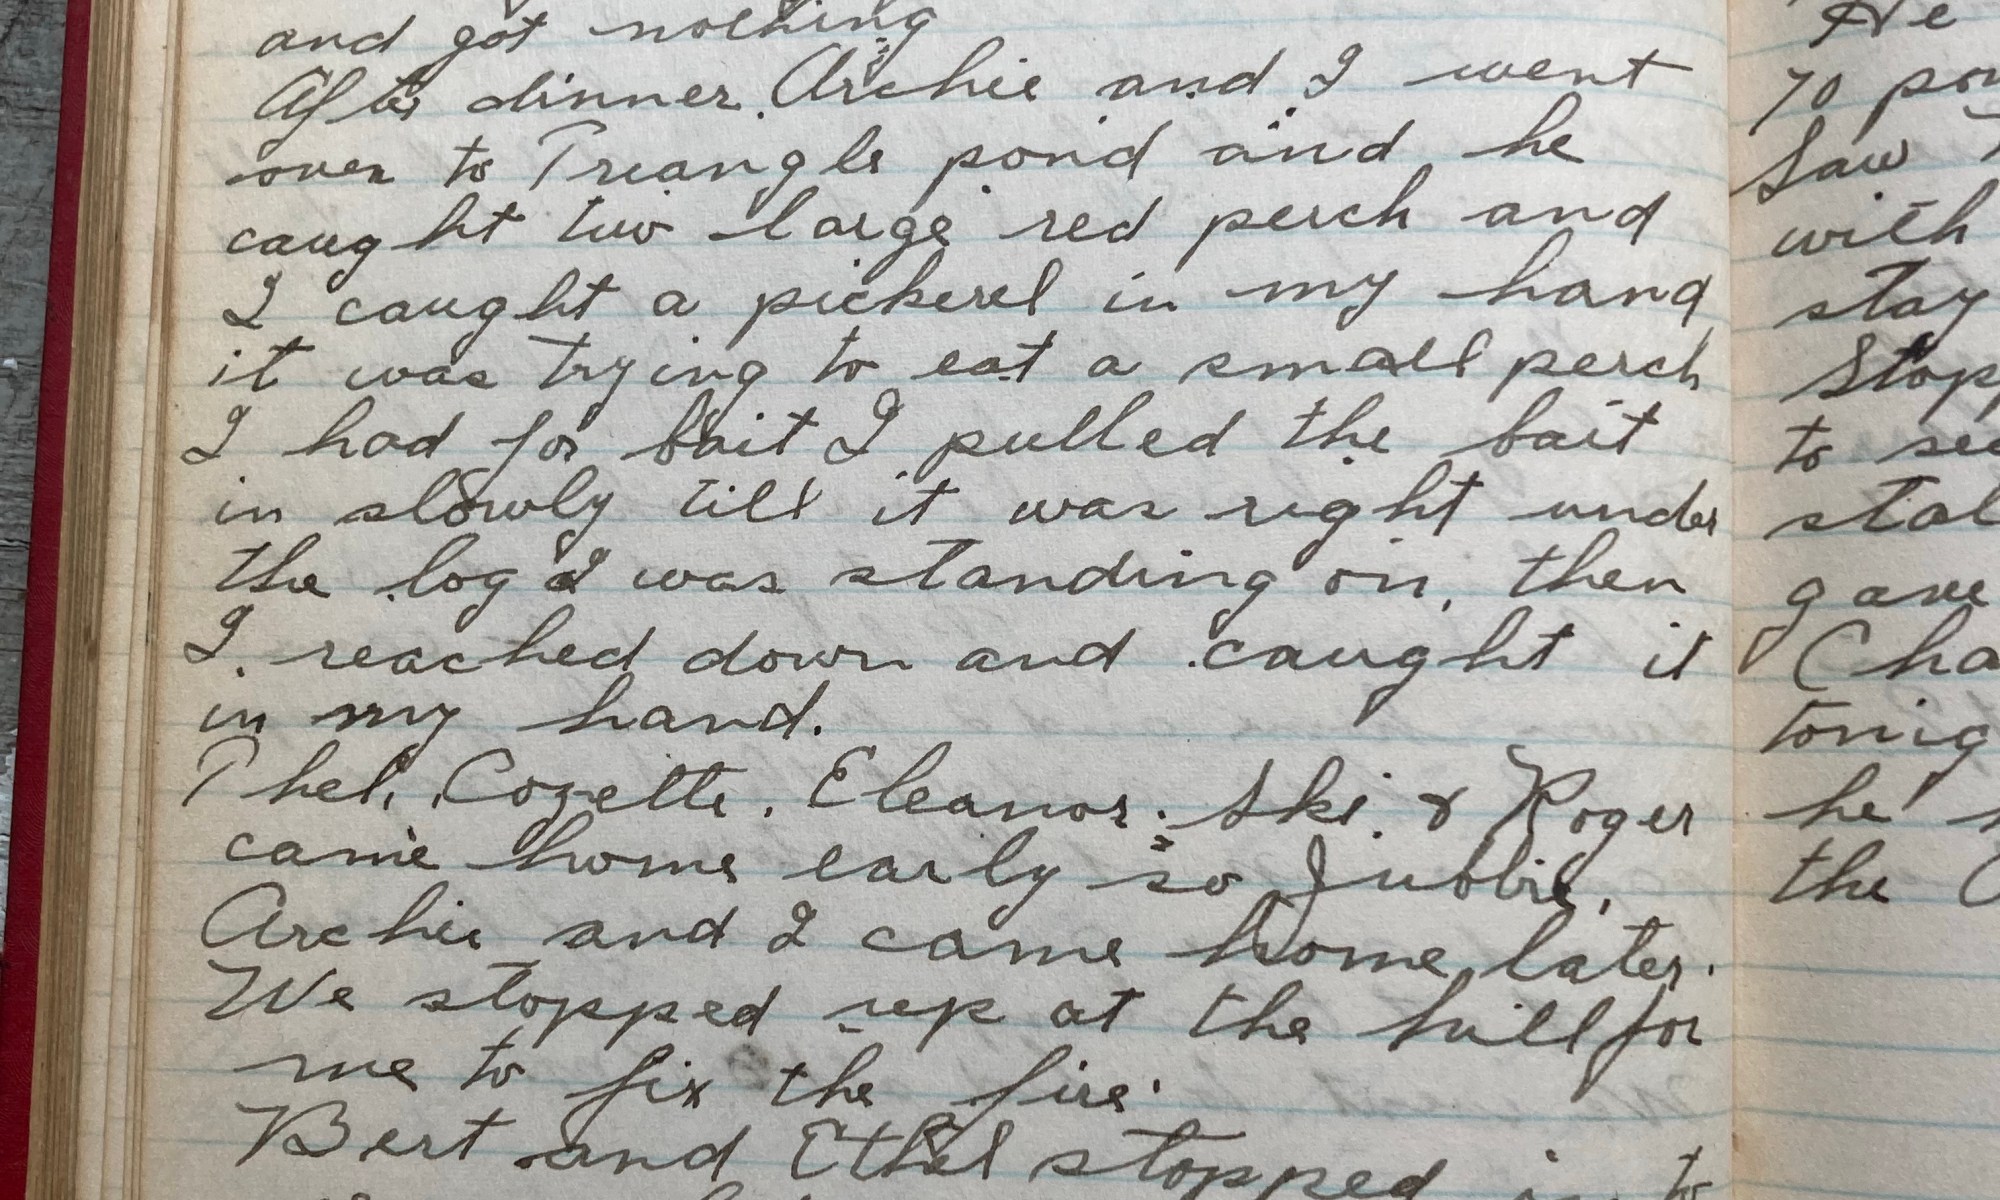 and got nothing
After dinner Archie and I went
over to Triangle pond and he
caught two large red perch and
I caught a pickerel in my hand
it was trying to eat a small perch
I had for bait I pulled the bait
in slowly till it was right under
the log I was standing on, then
I reached down and caught it
in my hand.
Thel, Cozette, Eleanor, Ski, & Roger
came home early so Jubbie,
Archie and I came home later.
We stopped up at the hill for
me to fix the fire.
Bert and Ethel stopped in to
He
70
Saw
with
stay
to
gave
he
the